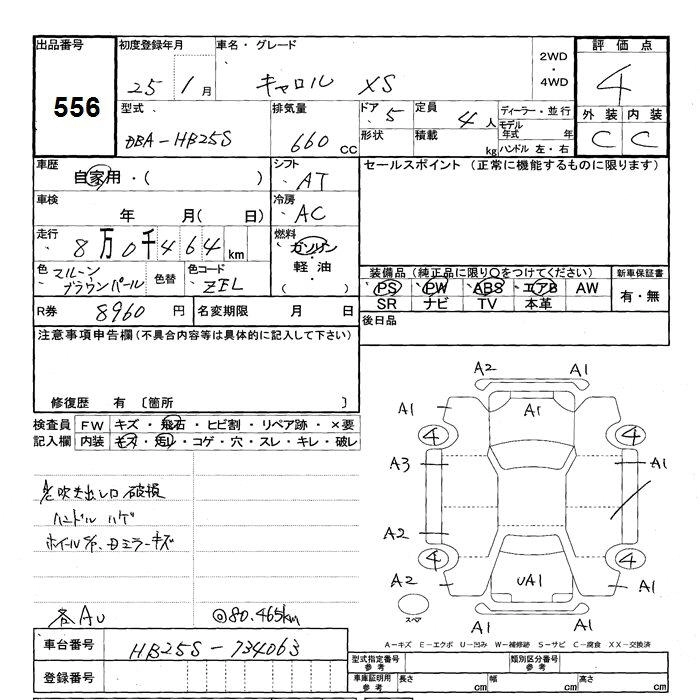 出品番号 初度登録年月 車名・グレード 評価点
556
25 1月 キャロル XS 2WD・4WD 4
型式 排気量 ドア 定員 ディーラー・並行 外装 内装
DBA-HB25S 660cc 5 4人 モデル年式 年 C C
形状 積載 kg ハンドル 左・右
車歴 シフト セールスポイント (正常に機能するものに限ります)
自家用・( ) AT
車検 冷房
年 月( 日) AC
走行 燃料
8万0千464km ガソリン・軽油
色 色替 色コード 装備品 (純正品に限り○をつけてください) 新車保証書
マルーンブラウンパール ZEL PS PW ABS エアB AW 有・無
SR ナビ TV 本革
R券 8960円 名変期限 月 日 後日品
注意事項申告欄(不具合内容等は具体的に記入して下さい)
修復歴 有 〔箇所 〕
検査員 FW キズ・飛石・ヒビ割・リペア跡・×要
記入欄 内装 キズ・汚レ・コゲ・穴・スレ・キレ・破レ
A2 A1
A1 A1
4 4
A3 A1
吹き出し口破損
ハンドルハゲ
A2
ミラーキズ
4 4
A2 UA1 A1
スペア
A1 A1
各AU @80.465km
A-キズ E-エクボ U-凹み W-補修跡 S-サビ C-腐食 XX-交換済
車台番号 HB25S-734063
型式指定番号 参考 類別区分番号 参考
登録番号 車庫証明用 参考 長さ cm 幅 cm 高さ cm